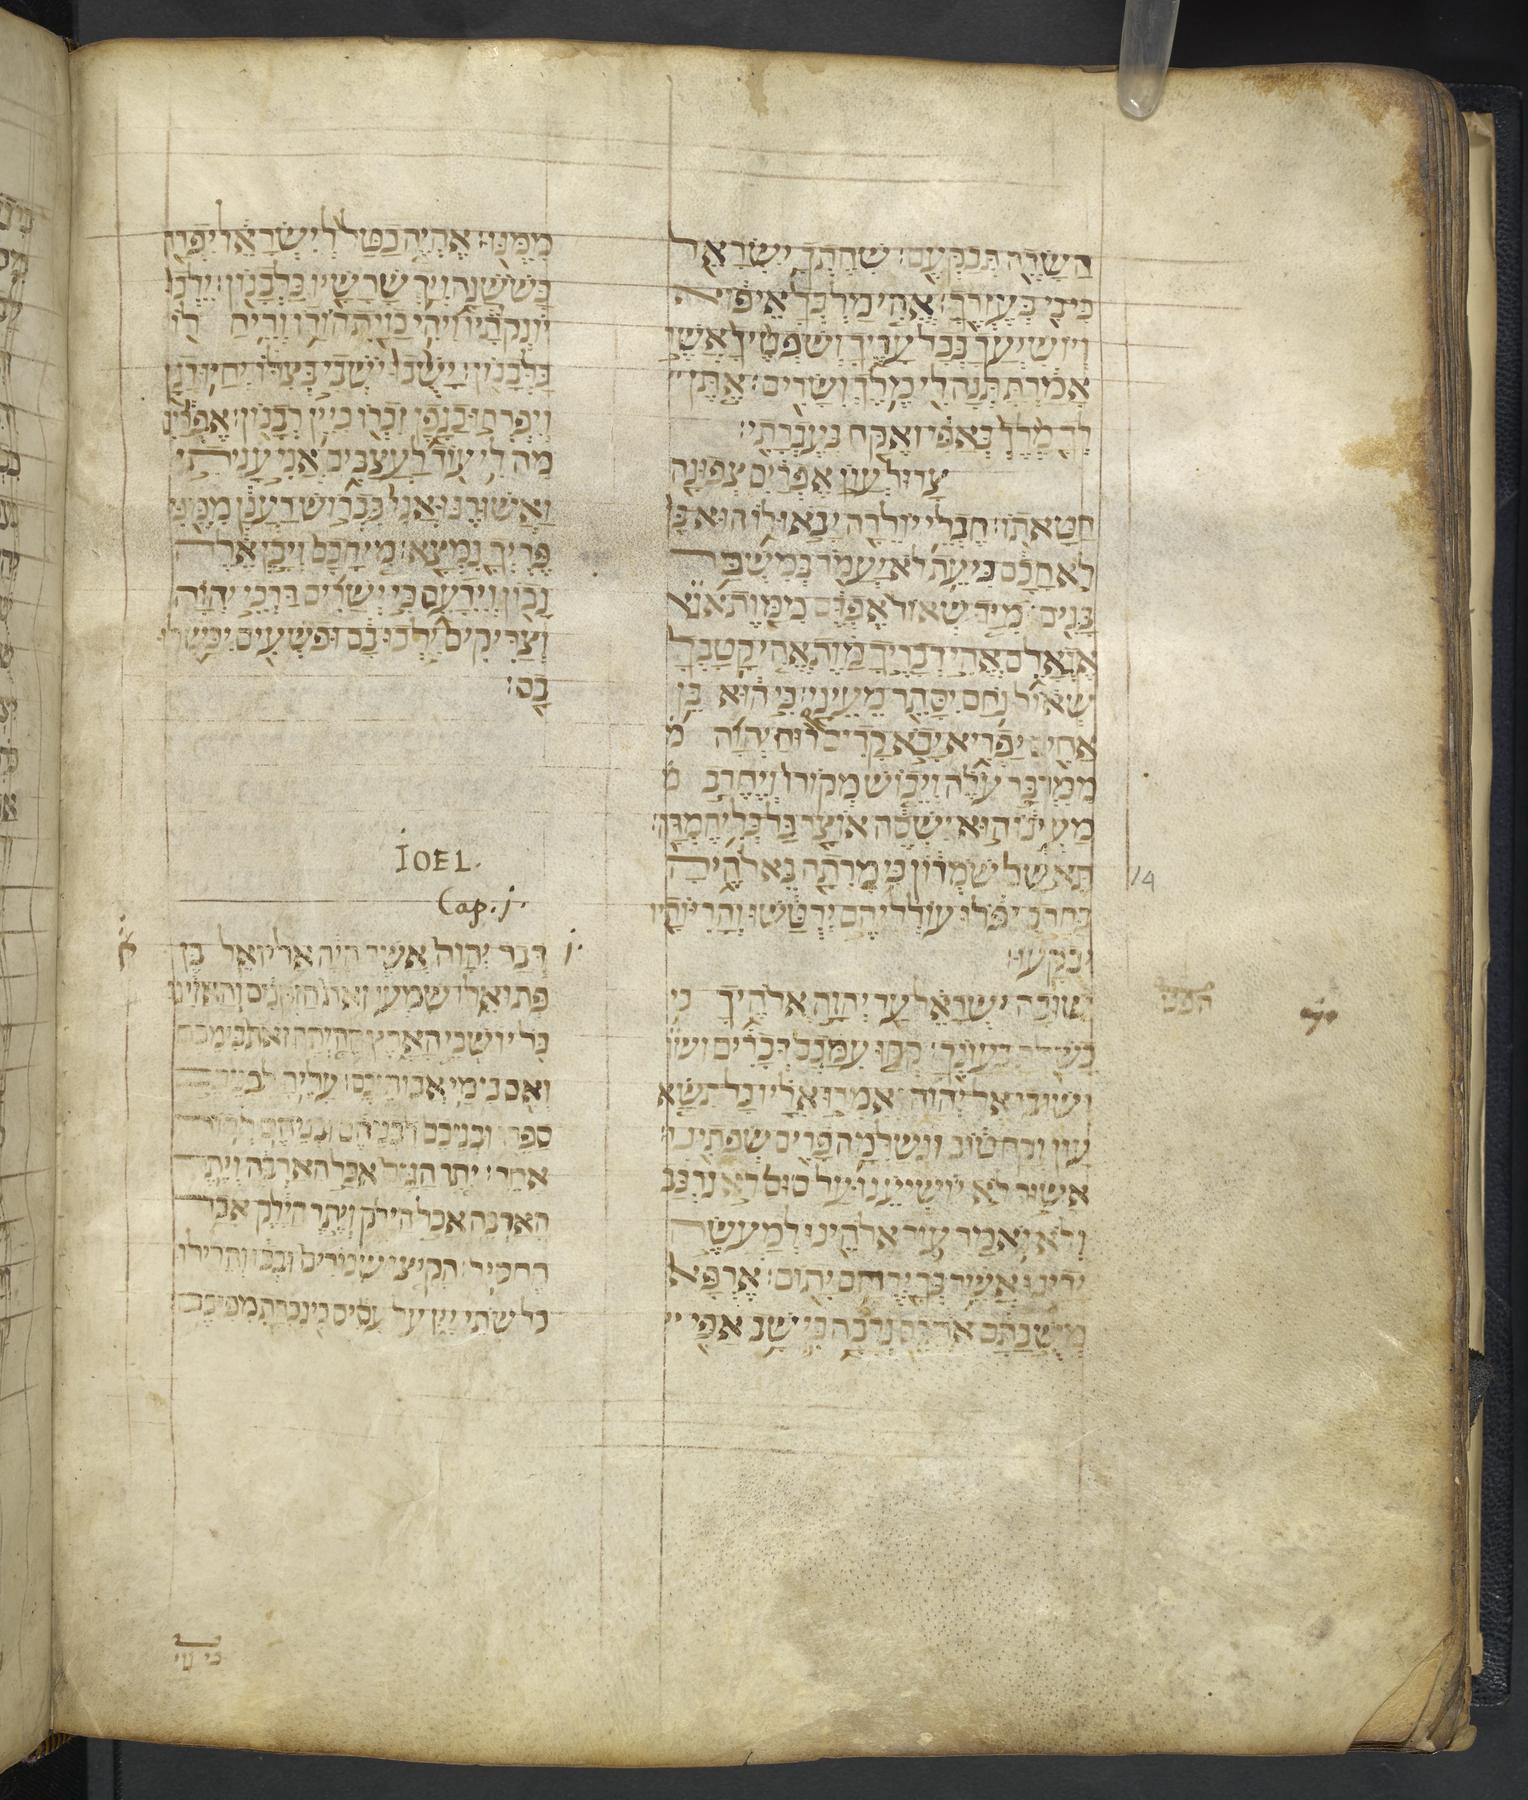 השדה תבקעם׃ שחתך ישראל
כי בי בעזרך׃ אהי מלכך איפוא
ויושיעך בכל עריך ושפטיך אשר
אמרת תנה לי מלך ושרים׃ אתן
לך מלך באפי ואקח בעברתי׃
צרור עון אפרים צפונה
חטאתו׃ חבלי יולדה יבאו לו הוא בן
לא חכם כי עת לא יעמד במשבר
בנים׃ מיד שאול אפדם ממות
אגאלם אהי דבריך מות אהי קטבך
שאול נחם יסתר מעיני׃ כי הוא בן
אחים יפריא יבא קדים רוח יהוה
ממדבר עלה ויבוש מקורו ויחרב
מעינו הוא ישסה אוצר כל כלי חמדה׃
תאשם שמרון כי מרתה באלהיה
בחרב יפלו עולליהם ירטשו והריותיו
יבקעו׃
שובה ישראל עד יהוה אלהיך כי
כשלת בעונך׃ קחו עמכם דברים
ושובו אל יהוה אמרו אליו כל תשא
עון וקח טוב ונשלמה פרים שפתינו׃
אשור לא יושיענו על סוס לא נרכב
ולא נאמר עוד אלהינו למעשה
ידינו אשר בך ירחם יתום׃ ארפא
משובתם אהבם נדבה כי שב אפי
14
הפט
ממנו׃ אהיה כטל לישראל יפרח
כשושנה ויך שרשיו כלבנון׃ ילכו
יונקתיו ויהי כזית הודו וריח לו
כלבנון׃ ישבו ישבי בצלו יחיו דגן
ויפרחו כגפן זכרו כיין לבנון׃ אפרים
מה לי עוד לעצבים אני עניתי
ואשורנו אני כברוש רענן ממני
פריך נמצא׃ מי חכם ויבן אלה
נבון וידעם כי ישרים דרכי יהוה
וצדיקים ילכו בם ופשעים יכשלו
בם׃
IOEL.
Cap. j.
j.
א
דבר יהוה אשר היה אל יואל בן
פתואל׃ שמעו זאת הזקנים והאזינו
כל יושבי הארץ ההיתה זאת בימיכם
ואם בימי אבותיכם׃ עליה לבניכם
ספרו ובניכם לבניהם ובניהם לדור
אחר׃ יתר הגזם אכל הארבה ויתר
הארבה אכל הילק ויתר הילק אכל
החסיל׃ הקיצו שכורים ובכו והילילו
כל שתי יין על עסיס כי נכרת מפיכם